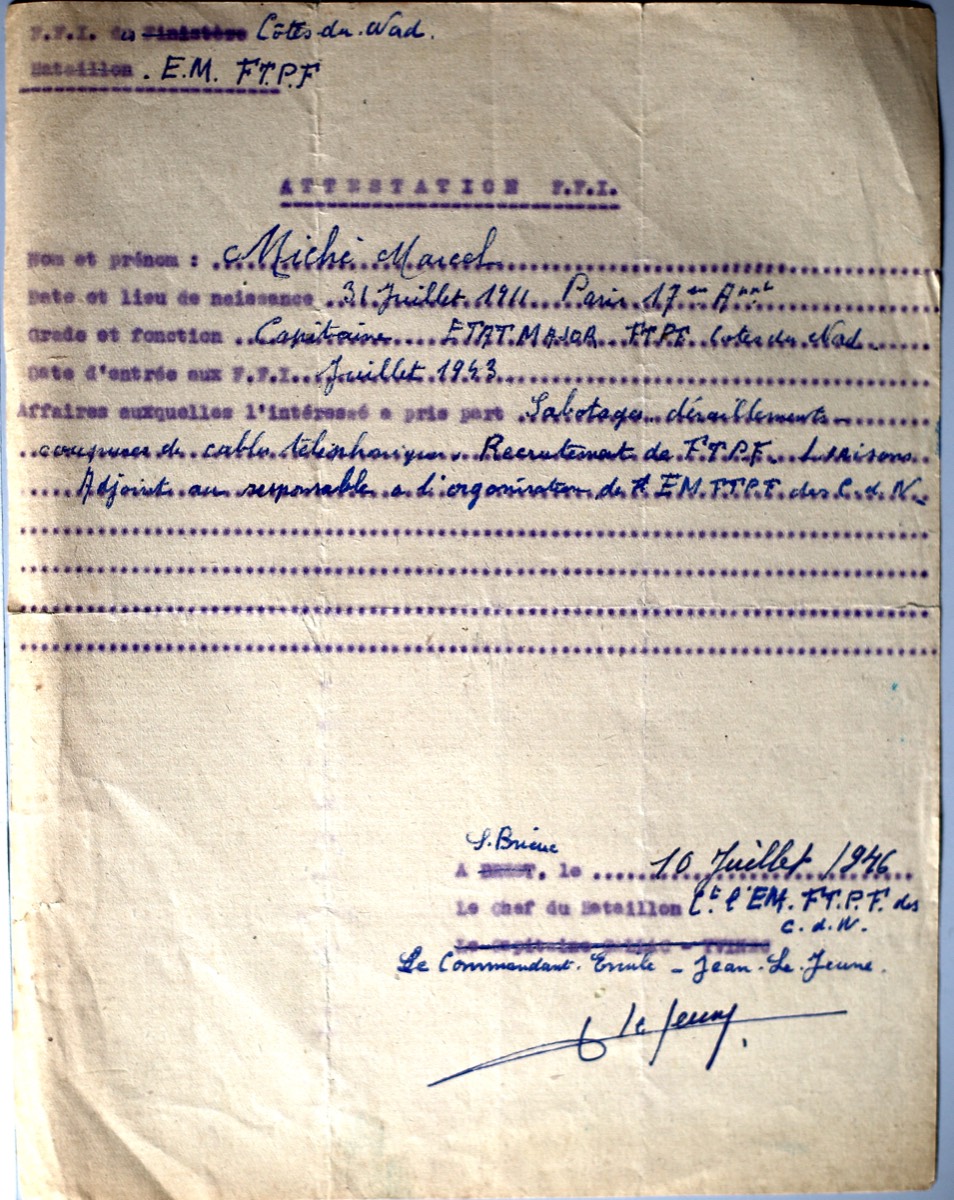 F.F.I. des Finistère Côtes du Nord.
Bataillon . E.M. FTPF
ATTESTATION F.F.I.
Nom et prénom : Miché Marcel
Date et lieu de naissance 31 Juillet 1911 Paris 17
Grade et fonction Capitaine ETAT MAJOR FTPF Cotes du Nord
Date d'entrée aux F.F.I. Juillet 1943
Affaires auxquelles l'intéressé a pris part Sabotages déraillements
coupures de cables téléphoniques. Recrutement de F.T.P.F. Liaisons
Adjoint au responsable a l'organisation de l'EM.FTPF des C.d.N.
S. Brieuc
A BREST, le 10 Juillet 1946
Le Chef du Bataillon Ct l'EM. F.T.P.F. des
C.d.N.
Le Capitaine
Le Commandant Ercule - Jean Le Jeune.
le Jeune